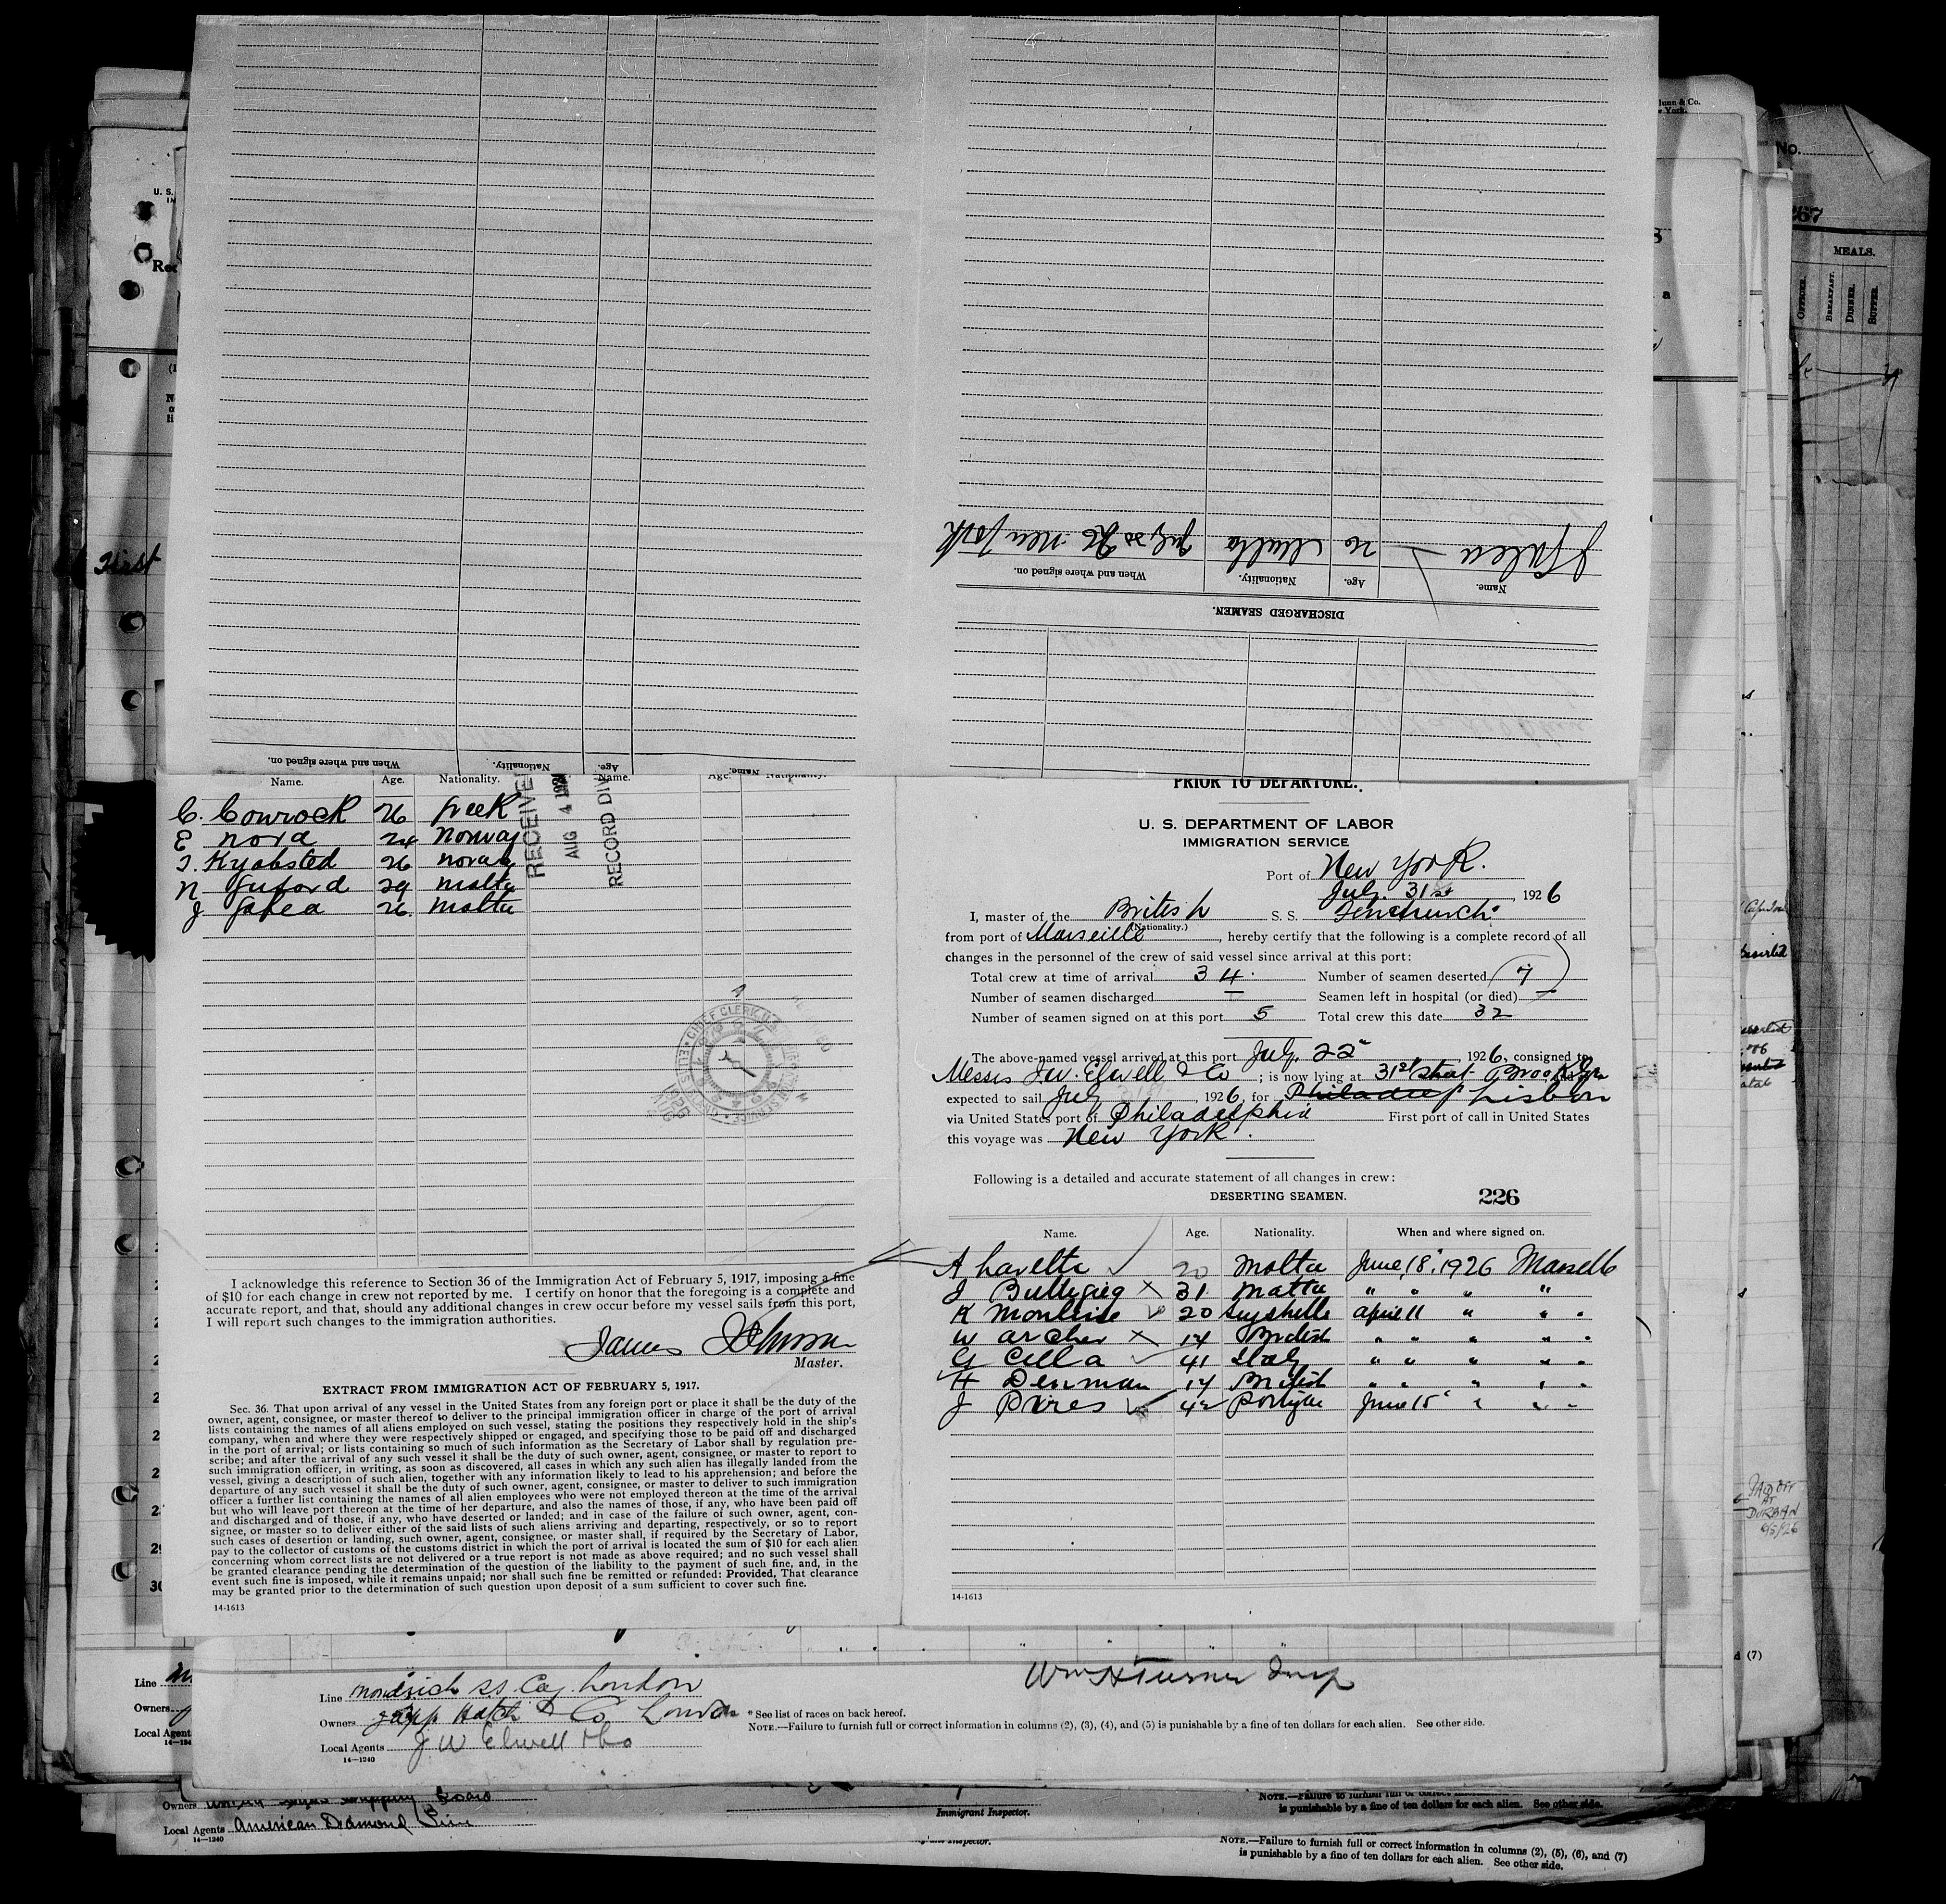 DISCHARGED SEAMEN.
Name. Age. Nationality. When and where signed on.
26 Malta July New York
When and where signed on. Nationality. Age. Name.
Name. Age. Nationality. Name. Age. Nationality.
C. Conrock 26 Greek
E nord 24 Norway
26
N 29 malta
J 26 malta
RECEIVED
AUG 4 192
RECORD DIV
I acknowledge this reference to Section 36 of the Immigration Act of February 5, 1917, imposing a fine
of $10 for each change in crew not reported by me. I certify on honor that the foregoing is a complete and
accurate report, and that, should any additional changes in crew occur before my vessel sails from this port,
I will report such changes to the immigration authorities.
James Johnson
Master.
EXTRACT FROM IMMIGRATION ACT OF FEBRUARY 5, 1917.
Sec. 36. That upon arrival of any vessel in the United States from any foreign port or place it shall be the duty of the
owner, agent, consignee, or master thereof to deliver to the principal immigration officer in charge of the port of arrival
lists containing the names of all aliens employed on such vessel, stating the positions they respectively hold in the ship's
company, when and where they were respectively shipped or engaged, and specifying those to be paid off and discharged
in the port of arrival; or lists containing so much of such information as the Secretary of Labor shall by regulation pre-
scribe; and after the arrival of any such vessel it shall be the duty of such owner, agent, consignee, or master to report to
such immigration officer, in writing, as soon as discovered, all cases in which any such alien has illegally landed from the
vessel, giving a description of such alien, together with any information likely to lead to his apprehension; and before the
departure of any such vessel it shall be the duty of such owner, agent, consignee, or master to deliver to such immigration
officer a further list containing the names of all alien employees who were not employed thereon at the time of the arrival
but who will leave port thereon at the time of her departure, and also the names of those, if any, who have been paid off
and discharged and of those, if any, who have deserted or landed; and in case of the failure of such owner, agent, con-
signee, or master so to deliver either of the said lists of such aliens arriving and departing, respectively, or so to report
such cases of desertion or landing, such owner, agent, consignee, or master shall, if required by the Secretary of Labor,
pay to the collector of customs of the customs district in which the port of arrival is located the sum of $10 for each alien
concerning whom correct lists are not delivered or a true report is not made as above required; and no such vessel shall
be granted clearance pending the determination of the question of the liability to the payment of such fine, and, in the
event such fine is imposed, while it remains unpaid; nor shall such fine be remitted or refunded: Provided, That clearance
may be granted prior to the determination of such question upon deposit of a sum sufficient to cover such fine.
14-1613
PRIOR TO DEPARTURE.
U. S. DEPARTMENT OF LABOR
IMMIGRATION SERVICE
Port of New York.
July 31st, 1926
I, master of the British S. S. Fenchurch
(Nationality.)
from port of Marseille, hereby certify that the following is a complete record of all
changes in the personnel of the crew of said vessel since arrival at this port:
Total crew at time of arrival 34 Number of seamen deserted 7
Number of seamen discharged — Seamen left in hospital (or died) —
Number of seamen signed on at this port 5 Total crew this date 32
The above-named vessel arrived at this port July 22, 1926, consigned to
Messrs J.W. Elwell & Co; is now lying at 31st street Brooklyn
expected to sail July, 1926, for Lisbon
via United States port of Philadelphia First port of call in United States
this voyage was New York.
Following is a detailed and accurate statement of all changes in crew:
DESERTING SEAMEN. 226
Name. Age. Nationality. When and where signed on.
A 20 Malta June 18, 1926 Marseille
J 31 Malta " " " "
K 20 april 11 " "
W archer 14 British " " " "
G Cella 41 Italy " " " "
H Denman 14 British " " " "
J Pires 42 June 15 " "
14-1613
Wm H Turner Insp
Line S.S. Coy London
Owners Hatch & Co London
Local Agents J W Elwell & Co
14—1240
* See list of races on back hereof.
NOTE.—Failure to furnish full or correct information in columns (2), (3), (4), and (5) is punishable by a fine of ten dollars for each alien. See other side.
Line
Owners
Local Agent
Owners
Local Agents American Diamond Line
14—1240
Immigrant Inspector.
NOTE.—Failure to furnish full or correct
is punishable by a fine of ten dollars for each alien. See other side.
NOTE.—Failure to furnish full or correct information in columns (2), (5), (6), and (7)
is punishable by a fine of ten dollars for each alien. See other side.
First
No.
267
MEALS.
OFFICER. BREAKFAST. DINNER. SUPPER.
PAID OFF
AT
DURBAN
6/5/26